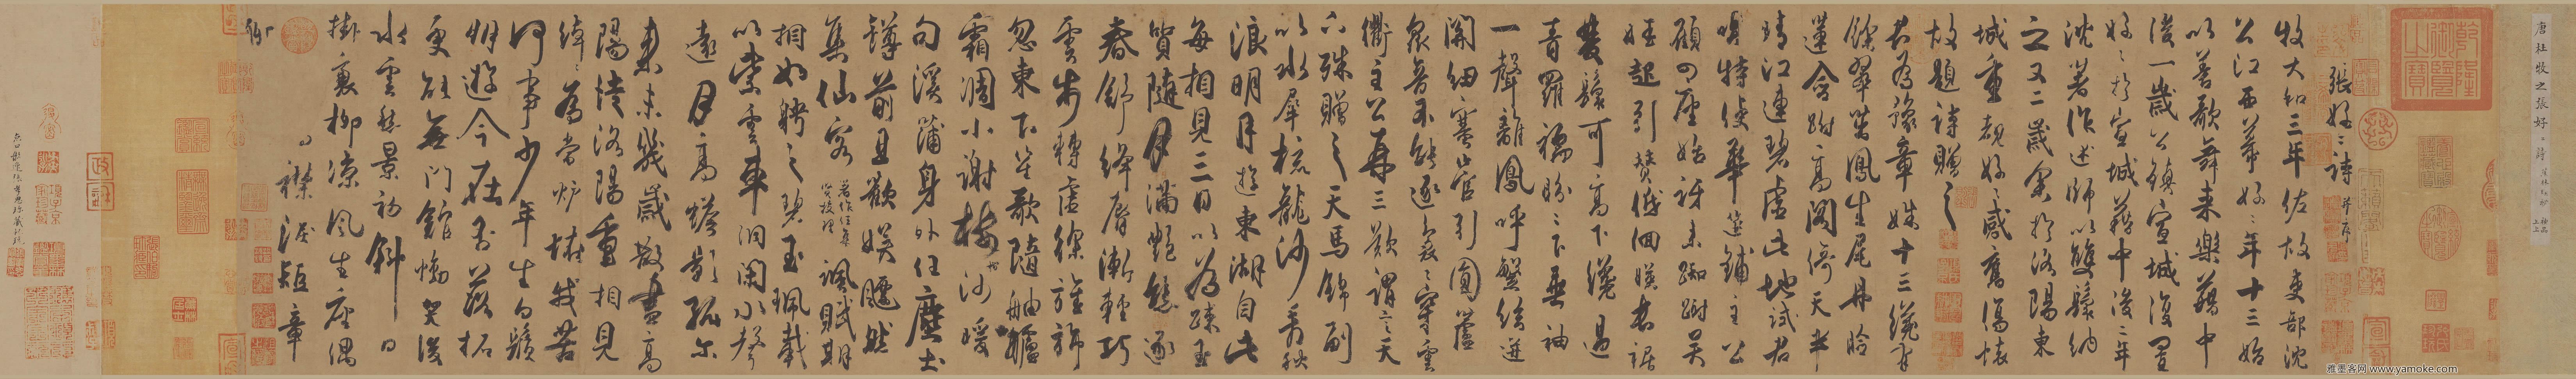 唐杜牧之張好好詩
乾隆御覽之寶
張好好詩 并序
牧大和三年佐故吏部沈
公江西幕好好年十三始
以善歌舞来樂籍中
後一歲公鎮宣城復置
好好於宣城籍中後二年
沈著作述師以雙鬟納
之又二歲余於洛陽東
城重覩好好感舊傷懷
故題詩贈之
君為豫章姝十三纔有
餘翠茁鳳生尾丹臉
蓮含跗高閣倚天半
晴江連碧虛此地試君
唱特使華筵鋪主公
顧四座始訝来踟蹰吳
娃起引贊低佪暎長裾
雙鬟可高下纔過
青羅襦盼盼下垂袖
一聲離鳳呼繁絃迸
關紐塞管引圓蘆
衆音不能逐裊裊穿雲
衢主公再三歎謂言天
下殊贈之天馬錦副
以水犀梳龍沙看秋
浪明月遊東湖自此
每相見三日以為踈玉
質隨月滿艷態逐
春舒絳脣漸輕巧
雲步轉虛徐旌旆
忽東下笙歌隨舳艫
霜凋小謝樹沙暖
句溪蒲身外任塵土
罇前且歡娛飄然
集仙客著作任集賢校理諷賦期
相如聘之碧玉珮載
以紫雲車洞閇水聲
遠月高蟾影孤尒
来未幾歲散盡高
陽徒洛陽重相見
綽綽為當爐怪我苦
何事少年生白鬚
朋遊今在否落拓
更能無門館慟哭後
水雲愁景初斜日
掛衰柳涼風生座隅
襟淚短章
聊
雅墨客网 www.yamoke.com